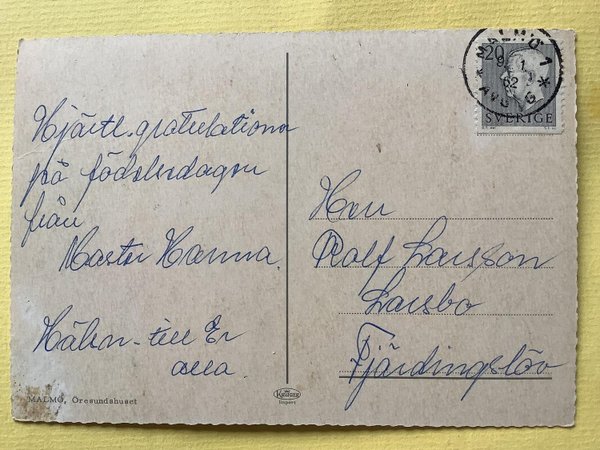 Hjärtl. gratulationer
på födelsedagen
från
Moster Hanna.
Hälsn. till Er
alla.
MALMÖ, Öresundshuset
Import
20
MALMÖ 1
9. 1
62
AVG
SVERIGE
Herr
Rolf Larsson
Larsbo
Fjärdingslöv